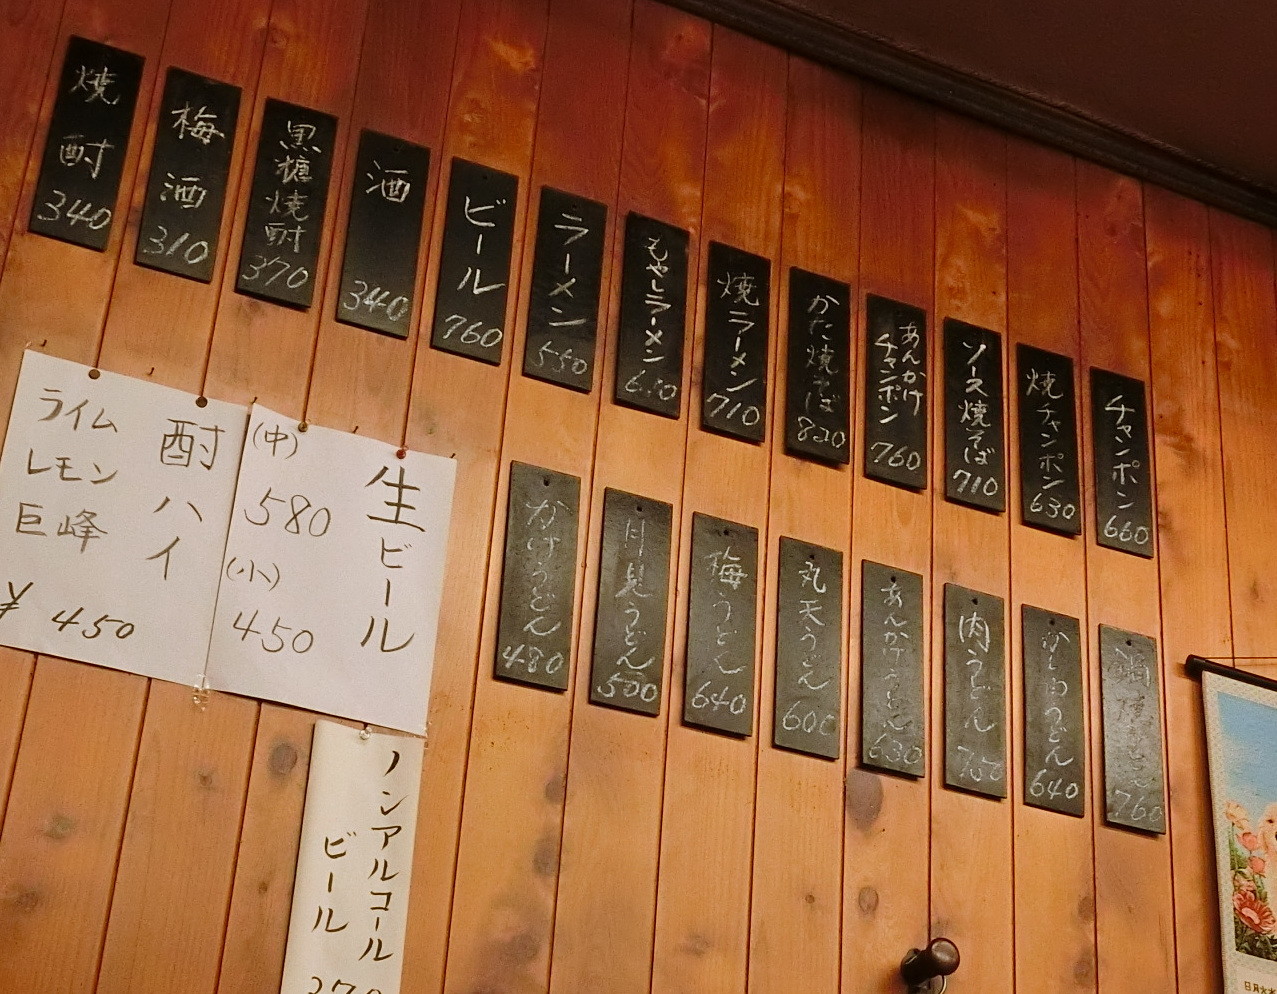 チャンポン
660
焼チャンポン
630
ソース焼そば
710
あんかけ
チャンポン
760
かた焼そば
820
焼ラーメン
710
もやしラーメン
ラーメン
550
ビール
760
酒
340
黒糖焼酎
370
梅酒
310
焼酎
340
うどん
760
うどん
640
肉うどん
あんかけうどん
630
丸天うどん
600
梅うどん
640
月見うどん
500
かけうどん
480
生ビール
(中)
580
(小)
450
酎ハイ
ライム
レモン
巨峰
¥450
ノンアルコール
ビール